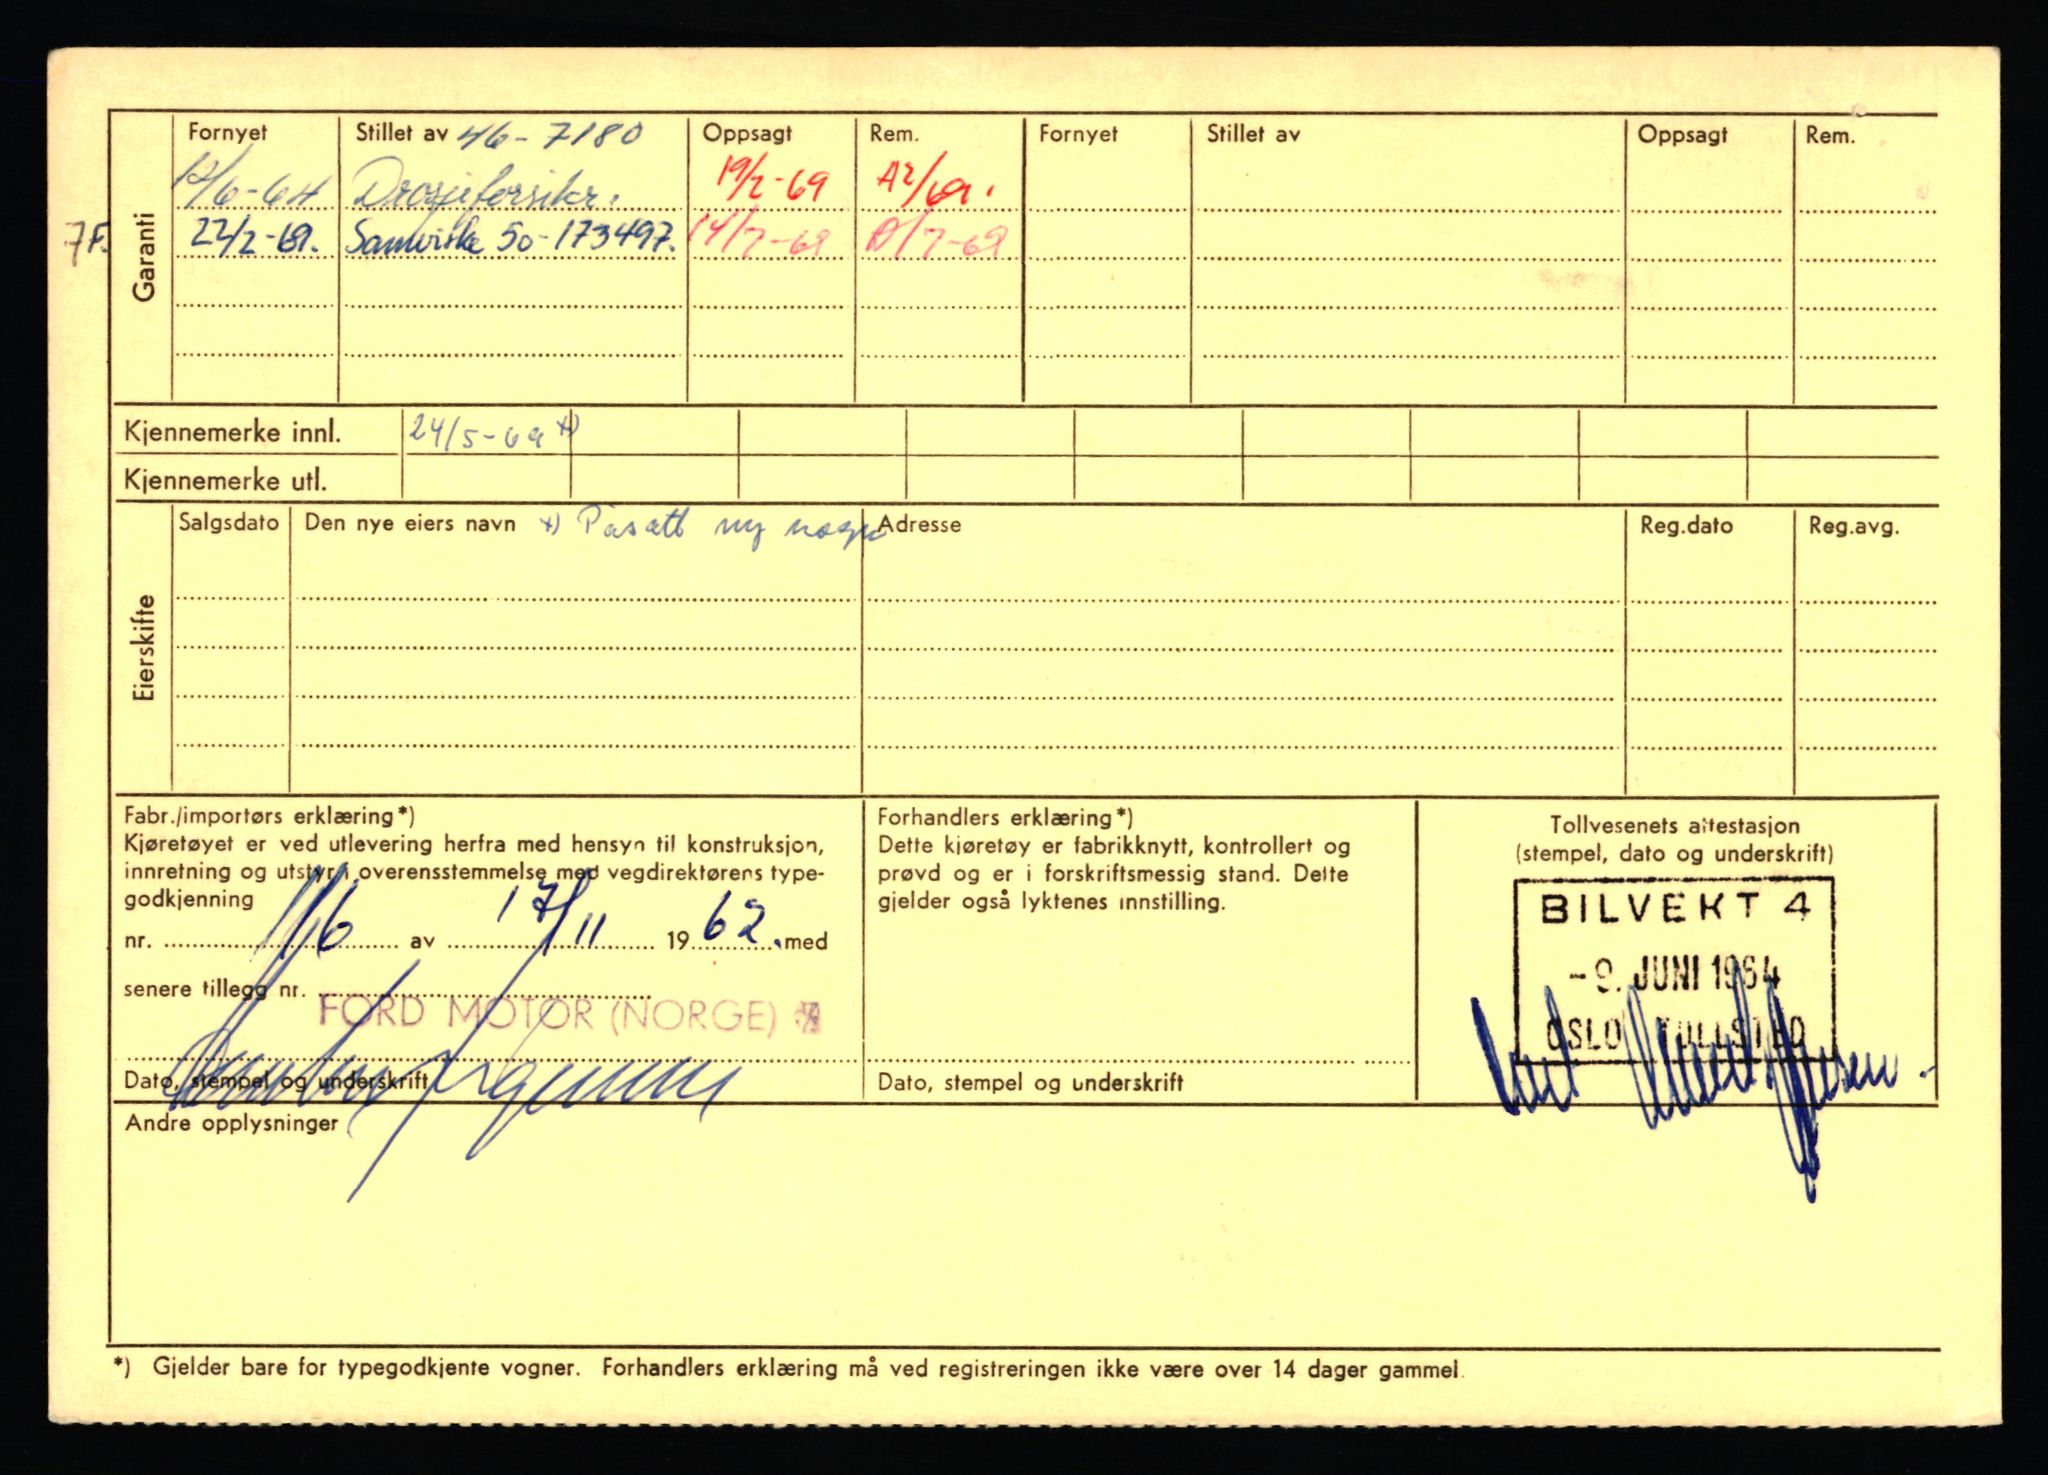 Garanti
Fornyet Stillet av 46-7180 Oppsagt Rem. Fornyet Stillet av Oppsagt Rem.
/6-64 Drosjeforsikr. 19/2-69 A2/69.
7F. 22/2-69. Samvirke 50-173497. 14/7-69 /7-69
Kjennemerke innl. 24/5-69 x)
Kjennemerke utl.
Eierskifte
Salgsdato Den nye eiers navn x) Påsatt ny vogn Adresse Reg.dato Reg.avg.
Fabr./importørs erklæring*)
Kjøretøyet er ved utlevering herfra med hensyn til konstruksjon,
innretning og utstyr i overensstemmelse med vegdirektørens type-
godkjenning
nr. 1116 av 17/11 1962. med
senere tillegg nr.
FORD MOTOR (NORGE)
Dato, stempel og underskrift
Forhandlers erklæring*)
Dette kjøretøy er fabrikknytt, kontrollert og
prøvd og er i forskriftsmessig stand. Dette
gjelder også lyktenes innstilling.
Dato, stempel og underskrift
Tollvesenets attestasjon
(stempel, dato og underskrift)
BILVEKT 4
-9. JUNI 1964
OSLO TOLLSTED
Andre opplysninger
*) Gjelder bare for typegodkjente vogner. Forhandlers erklæring må ved registreringen ikke være over 14 dager gammel.